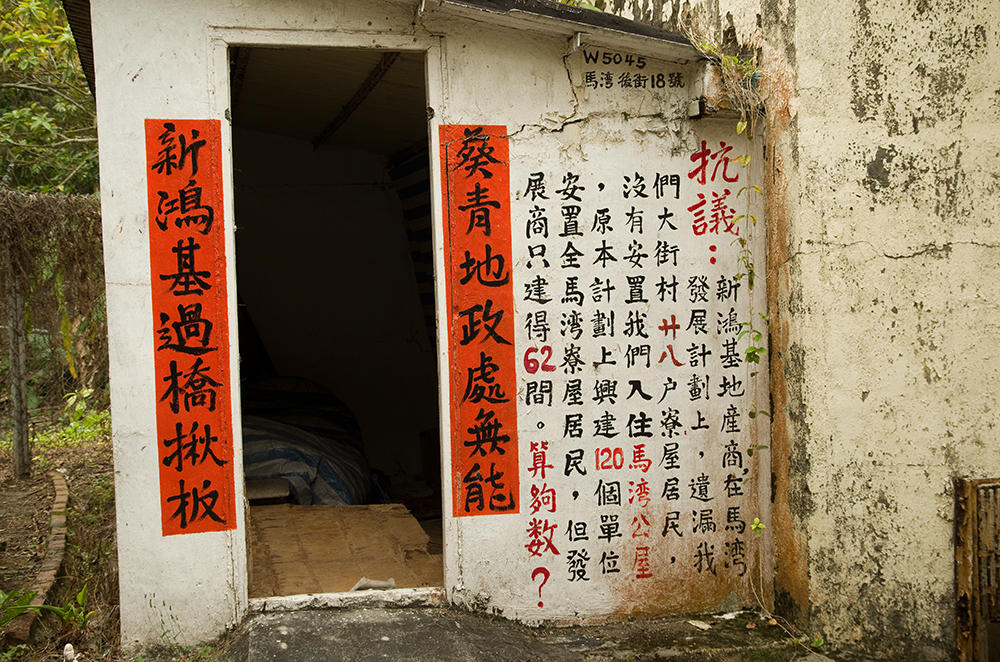 W5045
馬湾後街18號
抗議：
新鴻基地產商,在馬湾
發展計劃上，遺漏我
們大街村廿八户寮屋居民，
沒有安置我們入住馬湾公屋
，原本計劃上興建120個單位
安置全馬湾寮屋居民，但發
展商只建得62間。算夠数？
葵青地政處無能
新鴻基過橋揪板